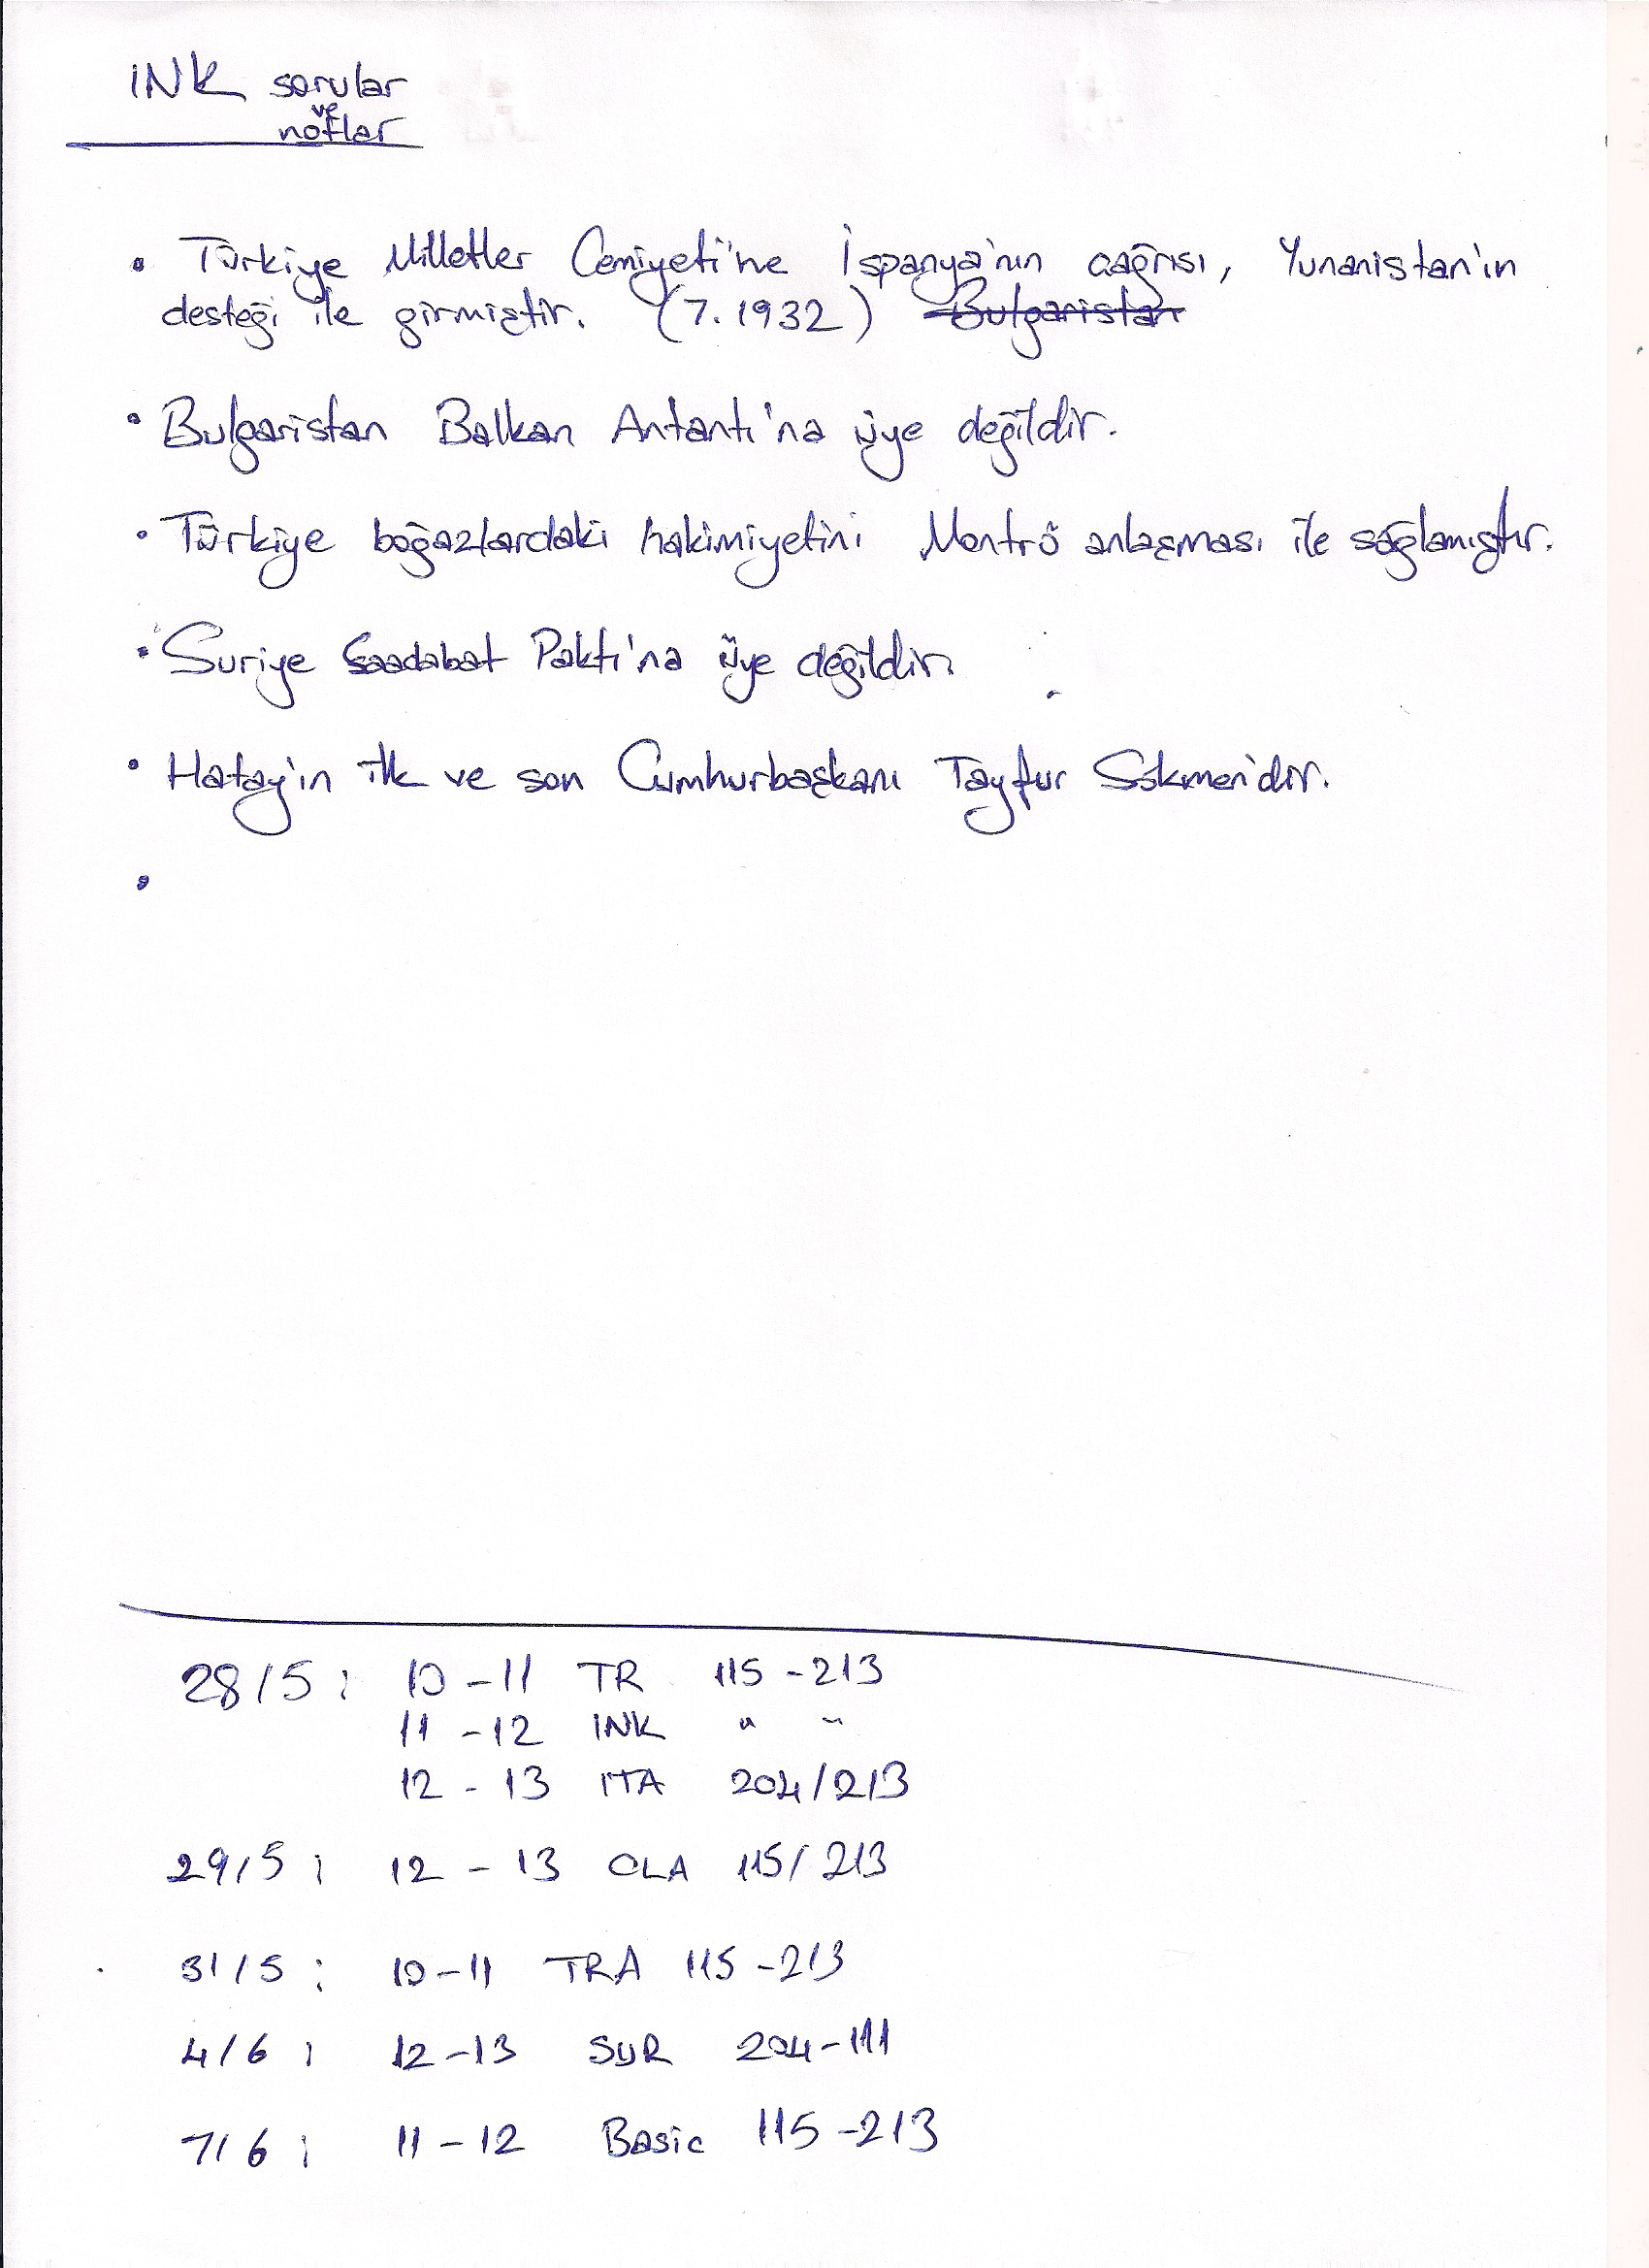 INK sorular
ve
notlar
• Türkiye Milletler Cemiyeti'ne İspanya'nın çağrısı, Yunanistan'ın
desteği ile girmiştir. (7.1932) Bulgaristan
• Bulgaristan Balkan Antantı'na üye değildir.
• Türkiye boğazlardaki hakimiyetini Montrö anlaşması ile sağlamıştır.
• Suriye Saadabat Paktı'na üye değildir.
• Hatay'ın ilk ve son Cumhurbaşkanı Tayfur Sökmen'dir.
•
28/5 : 10-11 TR 115-213
11-12 INK " "
12-13 ITA 204/213
29/5 : 12-13 CLA 115/213
31/5 : 10-11 TRA 115-213
4/6 : 12-13 SUR 204-111
7/6 : 11-12 Basic 115-213